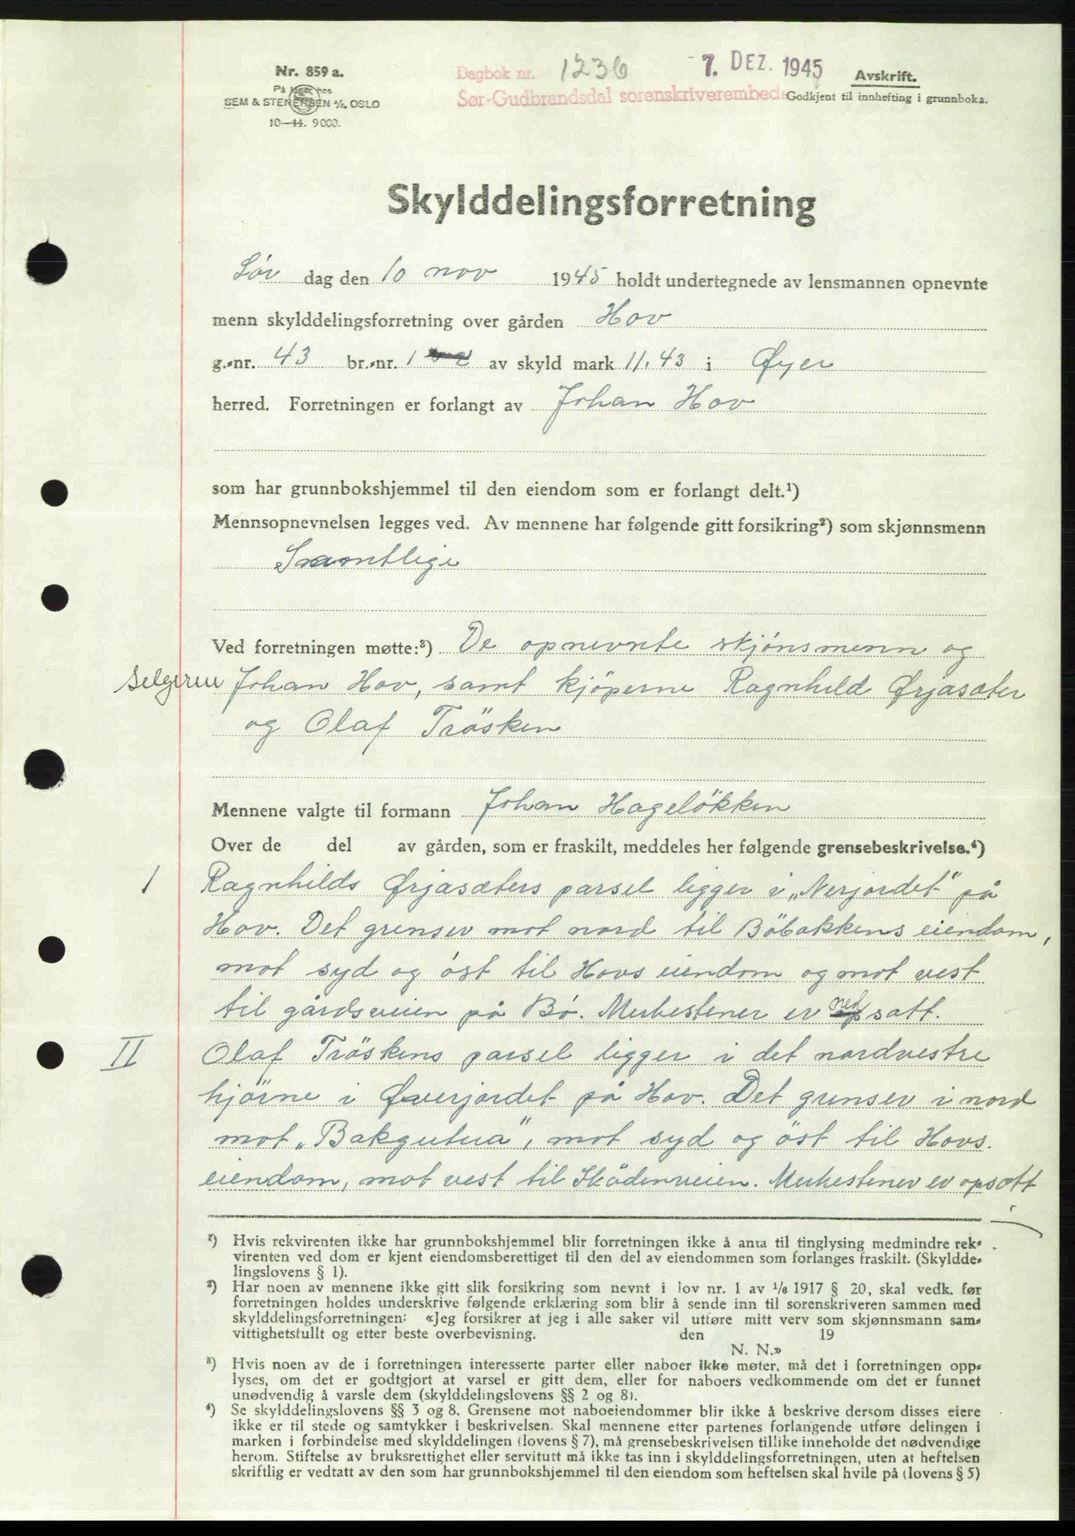 Nr. 859 a.
På lager hos
SEM & STENERSEN A/S, OSLO
10—44. 9000.
Dagbok nr. 1236 - 7. DEZ. 1945
Sør-Gudbrandsdal sorenskriverembede
Avskrift.
Godkjent til innhefting i grunnboka.
Skylddelingsforretning
Lör dag den 10 nov 1945 holdt undertegnede av lensmannen opnevnte
menn skylddelingsforretning over gården Hov
g.-nr. 43 br.-nr. 1 av skyld mark 11,43 i Øyer
herred. Forretningen er forlangt av Johan Hov
som har grunnbokshjemmel til den eiendom som er forlangt delt.¹)
Mennsopnevnelsen legges ved. Av mennene har følgende gitt forsikring²) som skjønnsmenn
Samtlige
Ved forretningen møtte:³) De opnevnte skjönsmenn og
selgeren Johan Hov, samt kjöperne Ragnhild Ørjasæter
og Olaf Trösken
Mennene valgte til formann Johan Hagelökken
Over de del av gården, som er fraskilt, meddeles her følgende grensebeskrivelse.⁴)
1 Ragnhilds Ørjasæters parsel ligger i „Nerjordet" på
Hov. Det grenser mot nord til Böbakkens eiendom,
mot syd og öst til Hovs eiendom og mot vest
til gårdsveien på Bö. Merkestener er nedsatt.
II Olaf Tröskens parsel ligger i det nordvestre
hjörne i Øverjordet på Hov. Det grenser i nord
mot „Bakgutua", mot syd og öst til Hovs
eiendom, mot vest til Skådenveien. Merkestener er opsatt
¹) Hvis rekvirenten ikke har grunnbokshjemmel blir forretningen ikke å anta til tinglysing medmindre rek-
virenten ved dom er kjent eiendomsberettiget til den del av eiendommen som forlanges fraskilt. (Skyldde-
lingslovens § 1).
²) Har noen av mennene ikke gitt slik forsikring som nevnt i lov nr. 1 av 1/6 1917 § 20, skal vedk. før
forretningen holdes underskrive følgende erklæring som blir å sende inn til sorenskriveren sammen med
skylddelingsforretningen: «Jeg forsikrer at jeg i alle saker vil utføre mitt verv som skjønnsmann sam-
vittighetsfullt og etter beste overbevisning. den 19
N. N.»
³) Hvis noen av de i forretningen interesserte parter eller naboer ikke møter, må det i forretningen opp-
lyses, om det er godtgjort at varsel er gitt dem, eller for naboers vedkommende om det er funnet
unødvendig å varsle dem (skylddelingslovens §§ 2 og 8).
⁴) Se skylddelingslovens §§ 3 og 8. Grensene mot naboeiendommer blir ikke å beskrive dersom disses eiere
ikke er til stede og samtykker i beskrivelsen. Skal mennene etter partenes forlangende utføre delingen i
marken i forbindelse med skylddelingen (lovens § 7), må grensebeskrivelsen tillike inneholde det nødvendige
herom. Stiftelse av bruksrettighet eller servitutt må ikke tas inn i skylddelingsforretningen, uten at heftelsen
skriftlig er vedtatt av den som har grunnbokshjemmel til den eiendom som heftelsen skal hvile på (lovens § 5)